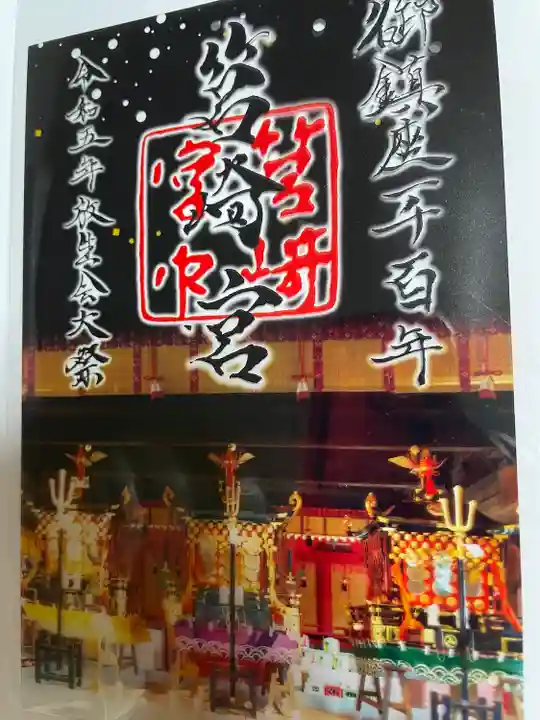 御鎮座一千百年
筥崎宮
令和五年放生会大祭